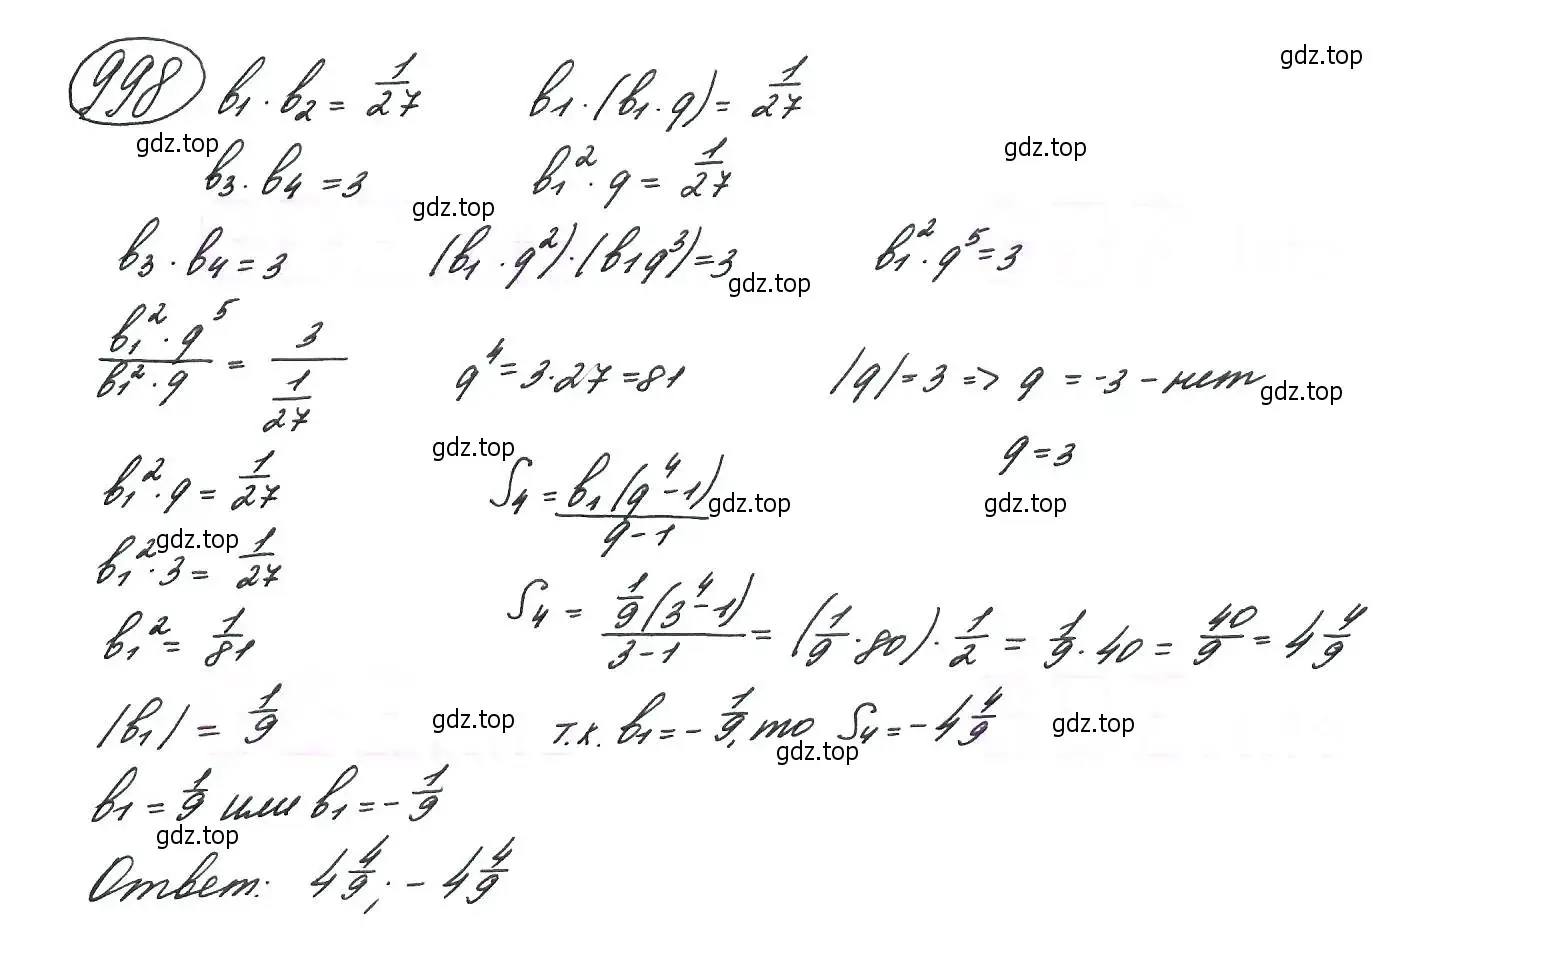 gdz.top
998 b₁ · b₂ = 1/27 b₁ · (b₁ · q) = 1/27
gdz.top gdz.top
b₃ · b₄ = 3 b₁² · q = 1/27
gdz.top
b₃ · b₄ = 3 (b₁ · q²) · (b₁q³) = 3 b₁² · q⁵ = 3
gdz.top
(b₁² · q⁵)/(b₁² · q) = 3/(1/27) q⁴ = 3 · 27 = 81 |q| = 3 => q = -3 - нет
gdz.top
gdz.top q = 3
b₁² · q = 1/27 S₄ = (b₁(q⁴ - 1))/(q - 1) gdz.top gdz.top
gdz.top
b₁² · 3 = 1/27
b₁² = 1/81 S₄ = (1/9(3⁴ - 1))/(3 - 1) = (1/9 · 80) · 1/2 = 1/9 · 40 = 40/9 = 4 4/9
|b₁| = 1/9 gdz.top т.к. b₁ = - 1/9, то S₄ = - 4 4/9 gdz.top
gdz.top
b₁ = 1/9 или b₁ = - 1/9
gdz.top
Ответ: 4 4/9; - 4 4/9